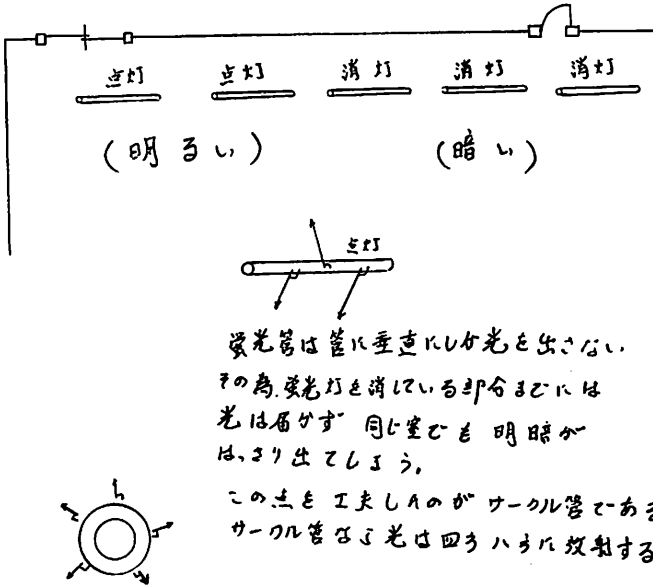 点灯 点灯 消灯 消灯 消灯
(明るい) (暗い)
点灯
蛍光管は管に垂直にしか光を出さない
その為、蛍光灯を消している部分までには
光は届かず 同じ室でも 明暗が
はっきり出てしまう。
この点を工夫したのがサークル管である
サークル管なら光は四方八方に放射する